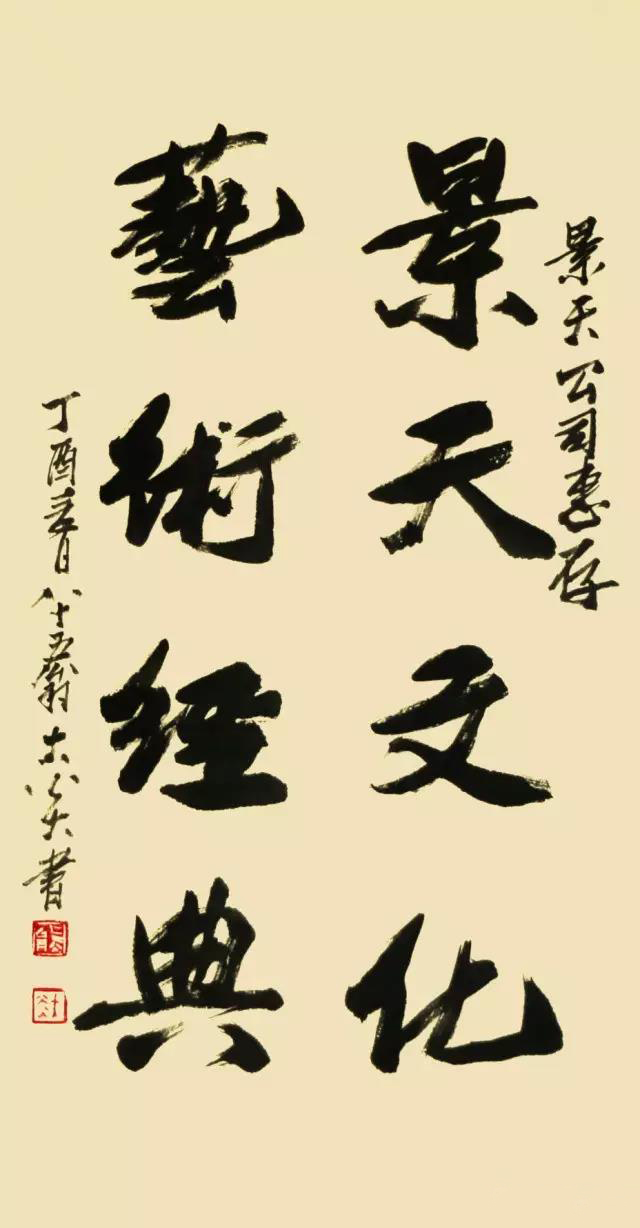 景天公司惠存
景天文化
藝術經典
丁酉春日八十五翁 書